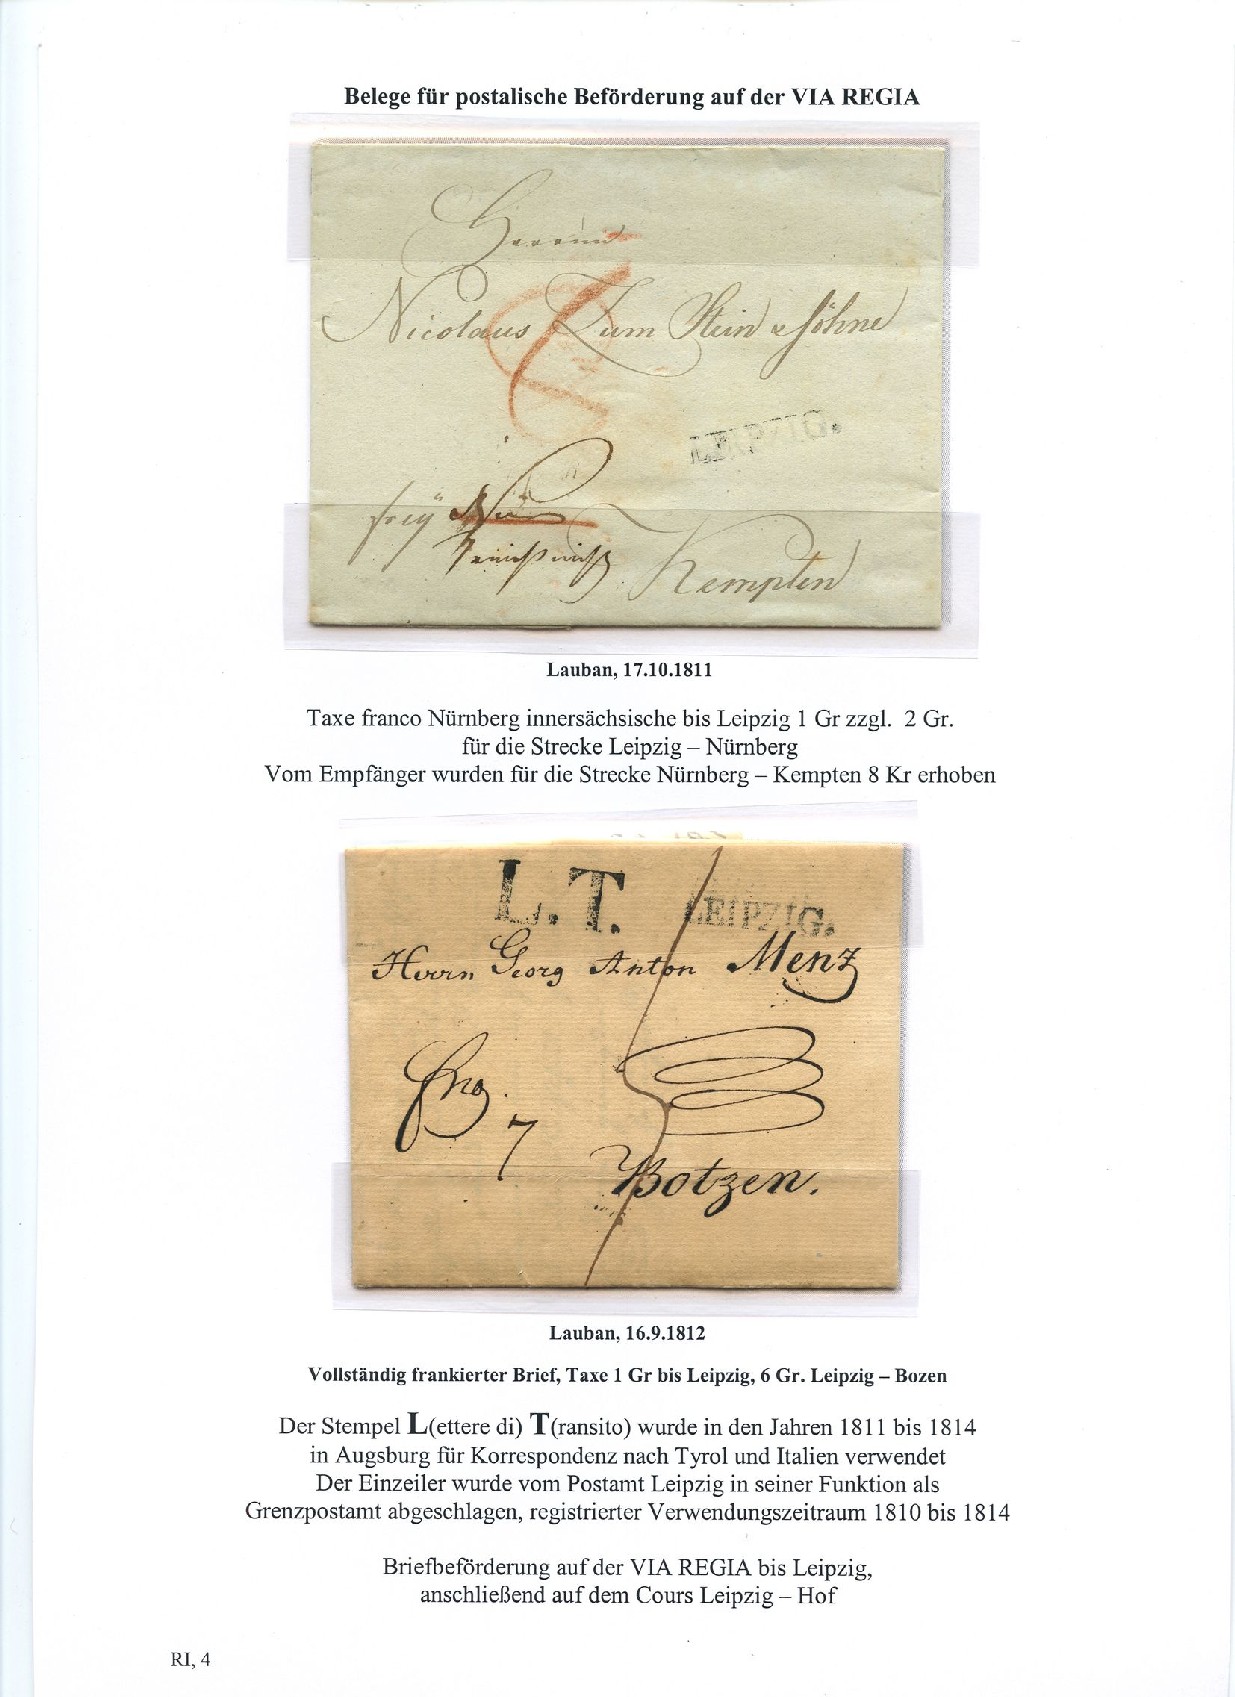 Belege für postalische Beförderung auf der VIA REGIA
Herren
Nicolaus Zum Stein u Söhne
LEIPZIG.
freÿ
Kempten
Lauban, 17.10.1811
Taxe franco Nürnberg innersächsische bis Leipzig 1 Gr zzgl. 2 Gr.
für die Strecke Leipzig – Nürnberg
Vom Empfänger wurden für die Strecke Nürnberg – Kempten 8 Kr erhoben
L. T. LEIPZIG.
Herrn Georg Anton Menz
7
Botzen.
Lauban, 16.9.1812
Vollständig frankierter Brief, Taxe 1 Gr bis Leipzig, 6 Gr. Leipzig – Bozen
Der Stempel L(ettere di) T(ransito) wurde in den Jahren 1811 bis 1814
in Augsburg für Korrespondenz nach Tyrol und Italien verwendet
Der Einzeiler wurde vom Postamt Leipzig in seiner Funktion als
Grenzpostamt abgeschlagen, registrierter Verwendungszeitraum 1810 bis 1814
Briefbeförderung auf der VIA REGIA bis Leipzig,
anschließend auf dem Cours Leipzig – Hof
RI, 4